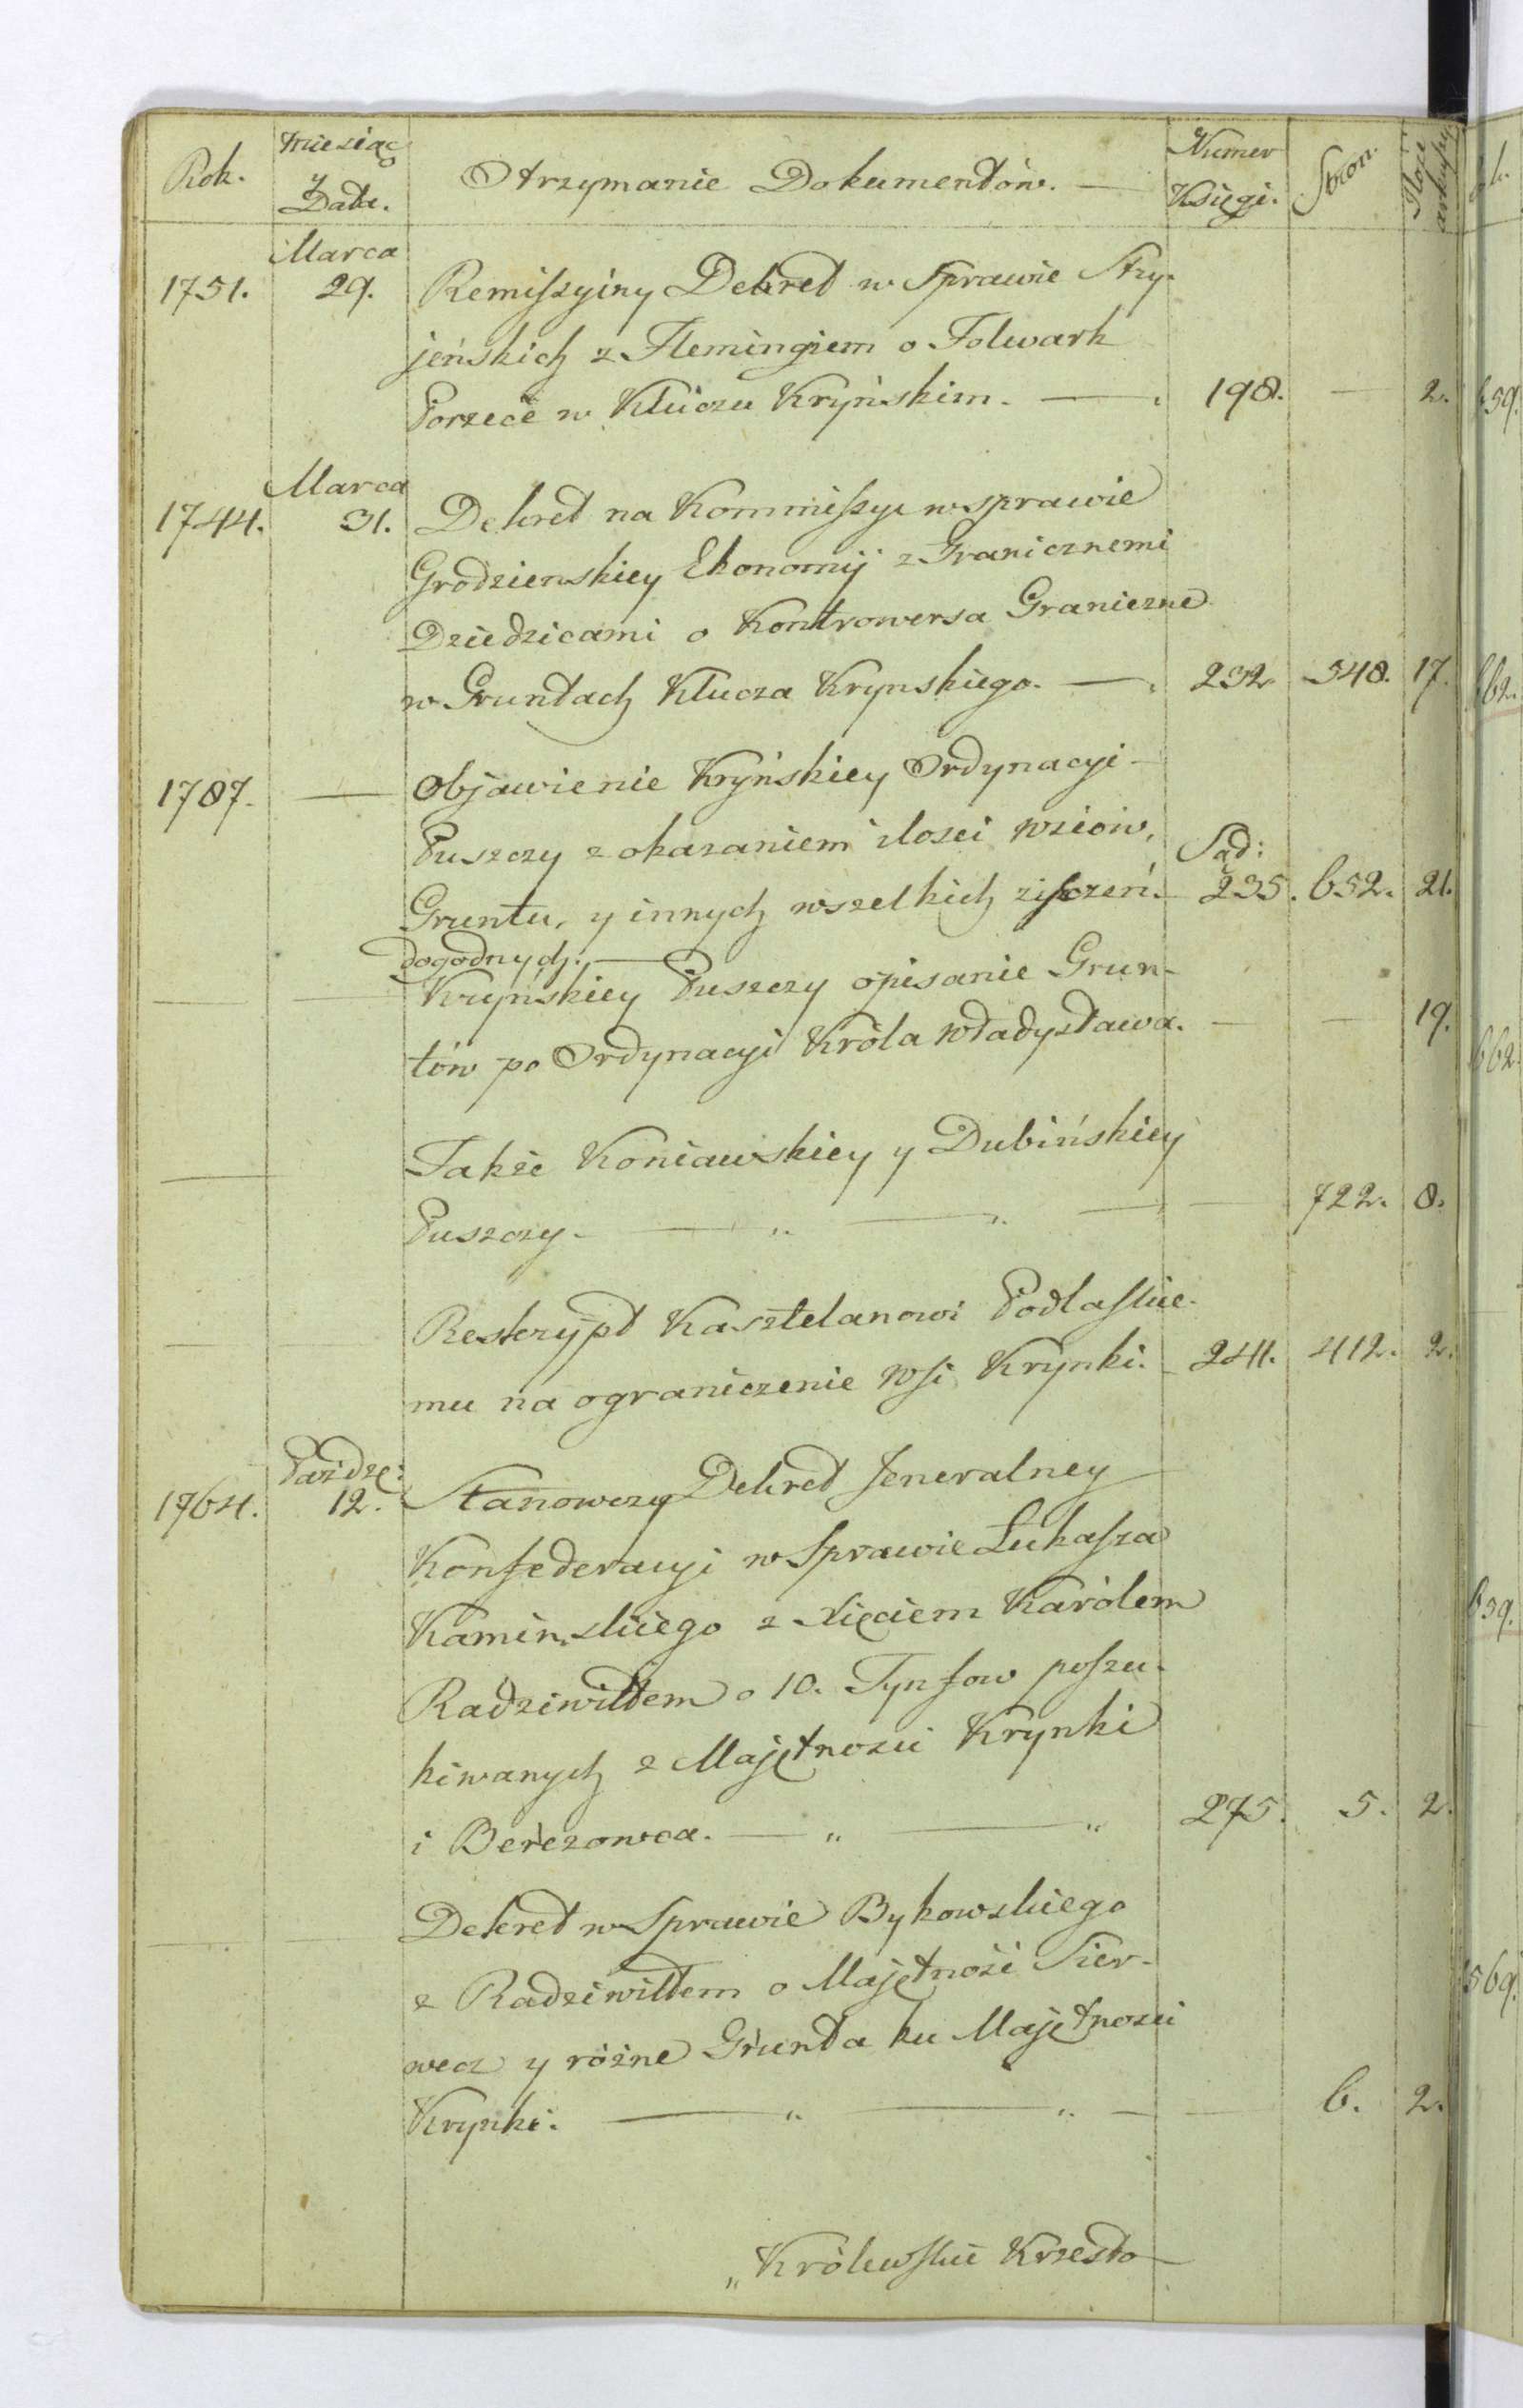 Rok. Miesiąc y Data. Otrzymanie Dokumentów. — Numer Księgi. Stron. Ilość arkuszy
Marca
1751. 29. Remissyiny Dekret w Sprawie Stry-
jeńskich z Flemingiem o Folwark
Porzecè w Kluczu Kryńskim. — 198. — 2.
Marca
1744. 31. Dekret na Kommissyi w sprawie
Grodzienskiey Ekonomij z Granicznemi
Dziedzicami o Kontrowersa Graniczne
w Gruntach Klucza Krynskiego. — 232 548. 17.
1787. — Objawienie Kryńskiey Ordynacyi
Puszczy z okazaniem ilosci wsiow,
Sąd:
Gruntu, y innych wszelkich ziszczeń 235. 652. 21.
dogodnych. —
— — Kryńskiey Puszczy opisanie Grun-
tów po Ordynacyi Króla Władysława. — — 19.
— Także Koniawskiey y Dubińskiey
Puszczy. — „ — „ — — 722. 8.
— — Reskrypt Kasztelanowi Podlaskie-
mu na ograniczenie Wsi Krynki. 241. 412. 2.
Paźdz:
1764. 12. Stanowczy Dekret Jeneralney
Konfederacyi w Sprawie Łukasza
Kaminskiego z Xięciem Karólem
Radziwiłłem o 10. Tynfow poszu-
kiwanych z Majętnosci Krynki
i Berezowca. — „ — „ 275. 5. 2.
— Dekret w Sprawie Bykowskiego
z Radziwiłłem o Majętnośi Sier-
wecz y różne Grunta ku Majętnosci
Krynki. — „ — „ — — 6. 2.
„Królewskie Krzesło